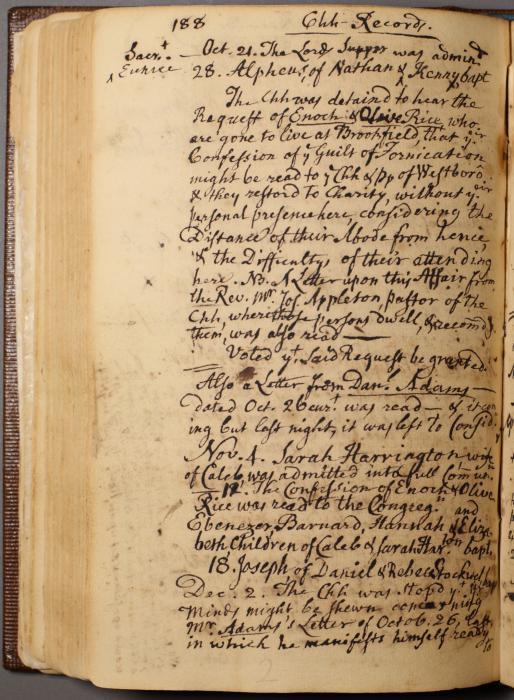 188 Chh-Records.
Sacr.t Oct. 21. The Lords Supper was admind
^ Eunice
28. Alpheus, of Nathan & ^ Kenny bapt
The Chh was detaind to hear the
Request of Enoch & Olive Rice, who
are gone to live at Brookfield, that yeir
Confession of ye Guilt of Fornication
might be read to ye Chh & pp of Westboro'
& they restord to Charity, without yeir
personal presence here, considering the
Distance of their Abode from hence,
& the Difficultys of their attending
here. N.B. A Letter upon this Affair from
the Rev. Mr. Jos. Appleton, pastor of the
Chh, where those persons dwell, & recomdg
them, was also read —
Voted yt. Said Request be granted.
Also a Letter from Danl. Adams —
dated Oct. 26 curt. was read — & it com
ing but last night, it was left to Consid.
Nov. 4. Sarah Harrington wife
of Caleb was admitted into full Comun.
11. The Confession of Enoch & Olive
Rice was read to the Congreg. and
Ebenezer, Barnard, Hannah & Eliza
beth, Children of Caleb & Sarah Harrington bapt.
18. Joseph of Daniel & Rebec. Stockwel bapt
Dec. 2. The Chh was stopd yt. yeir
Minds might be shewn concerning
Mr. Adams's Letter of Octob. 26, last
in which he manifests himself ready
to
2